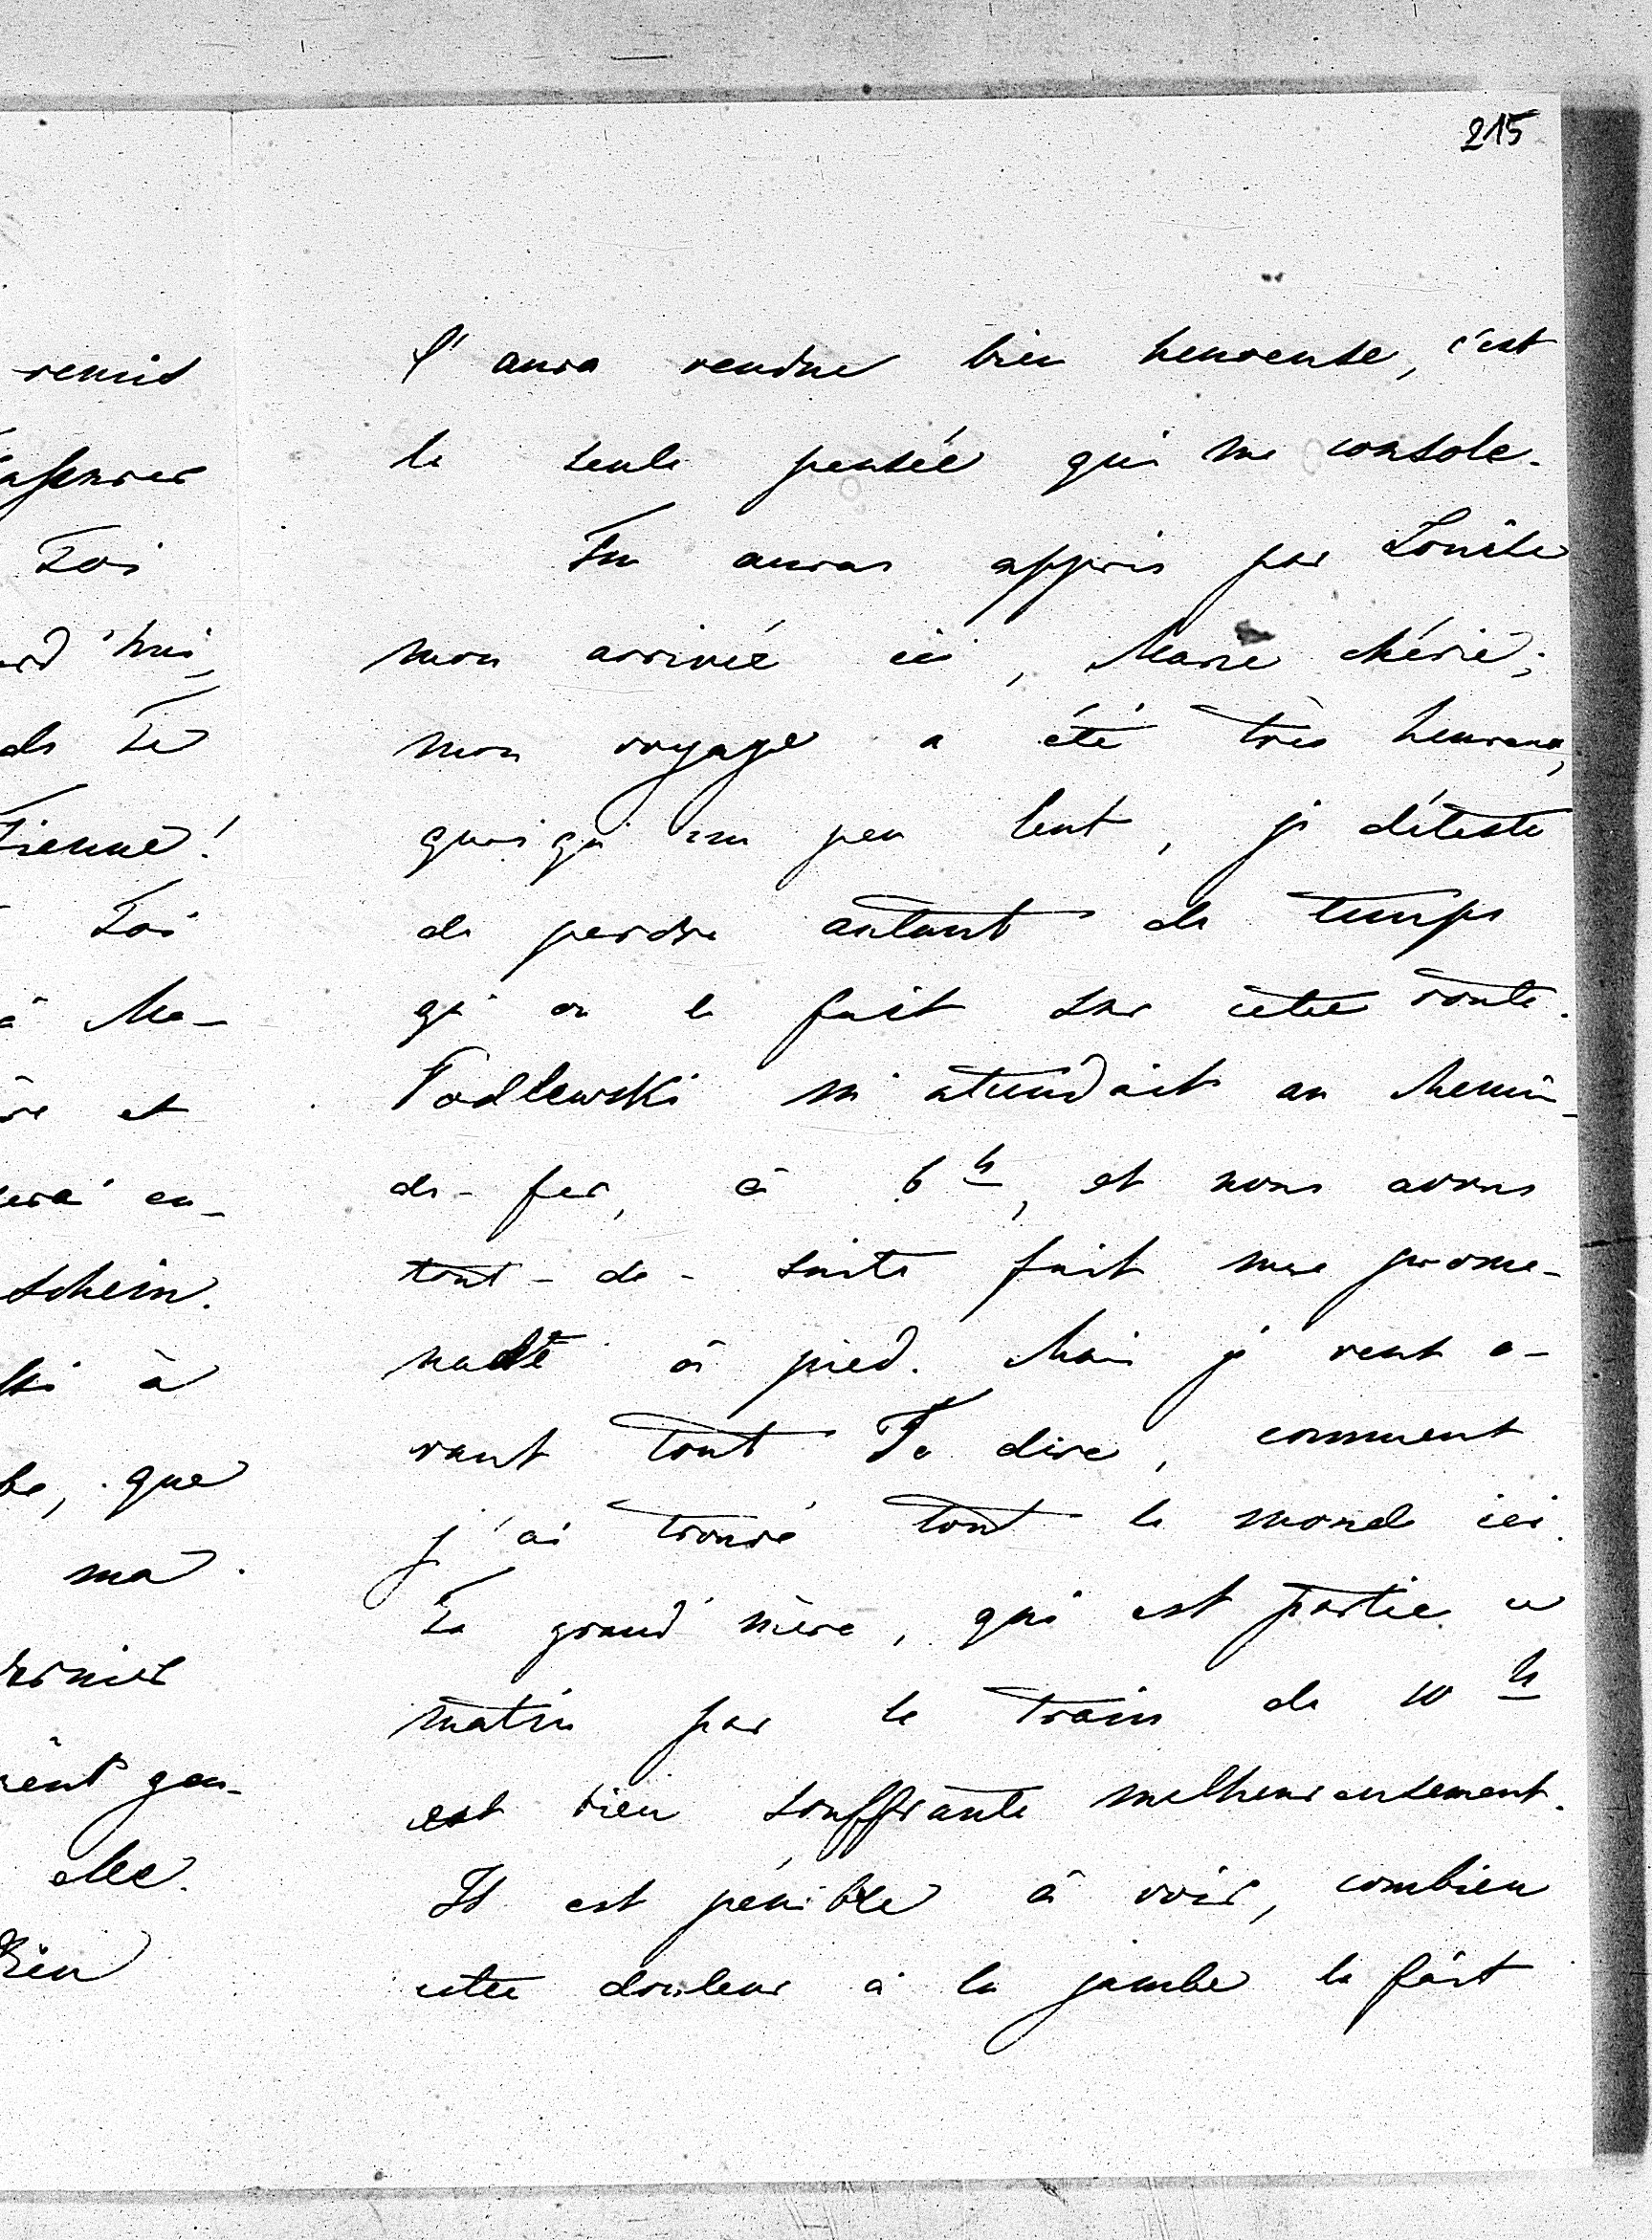 215
remis
Tassurer
Toi
ard'hui,
ds Te
Tienne!
Toi
à Ma-
et
en-
schein.
ski à
que
ma
dernier
gen-
elle.
bien
l'aura rendue bien heureuse, c'est
la seule pensée qui me console.
Tu auras appris par Louise
mon arrivée ici, Marie chérie;
mon voyage a été très heureux,
quoiqu'un peu lent, je déteste
de perdre autant de temps
qu'on le fait sur cette route.
Podlewski m'attendait au chemin-
de-fer, à 6h, et nous avons
tout-de-suite fait une prome-
nade à pied. Mais je veut a-
vant tout Te dire, comment
j'ai trouvé tout le monde ici.
Ta grand'mère, qui est partie ce
matin par le train de 10h
est bien souffrante malheureusement.
Il est pénible à voir, combien
cette douleur à la jambe la fait